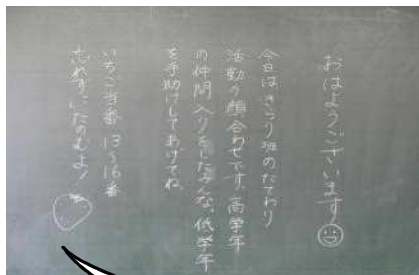 おはようございます
今日は、きょうり班のたてわり
活動の顔合わせです。高学年
の仲間入りをしたみんな、低学年
を手助けしてあげてね。
いちご当番 13〜16番
忘れず、たのむよ!